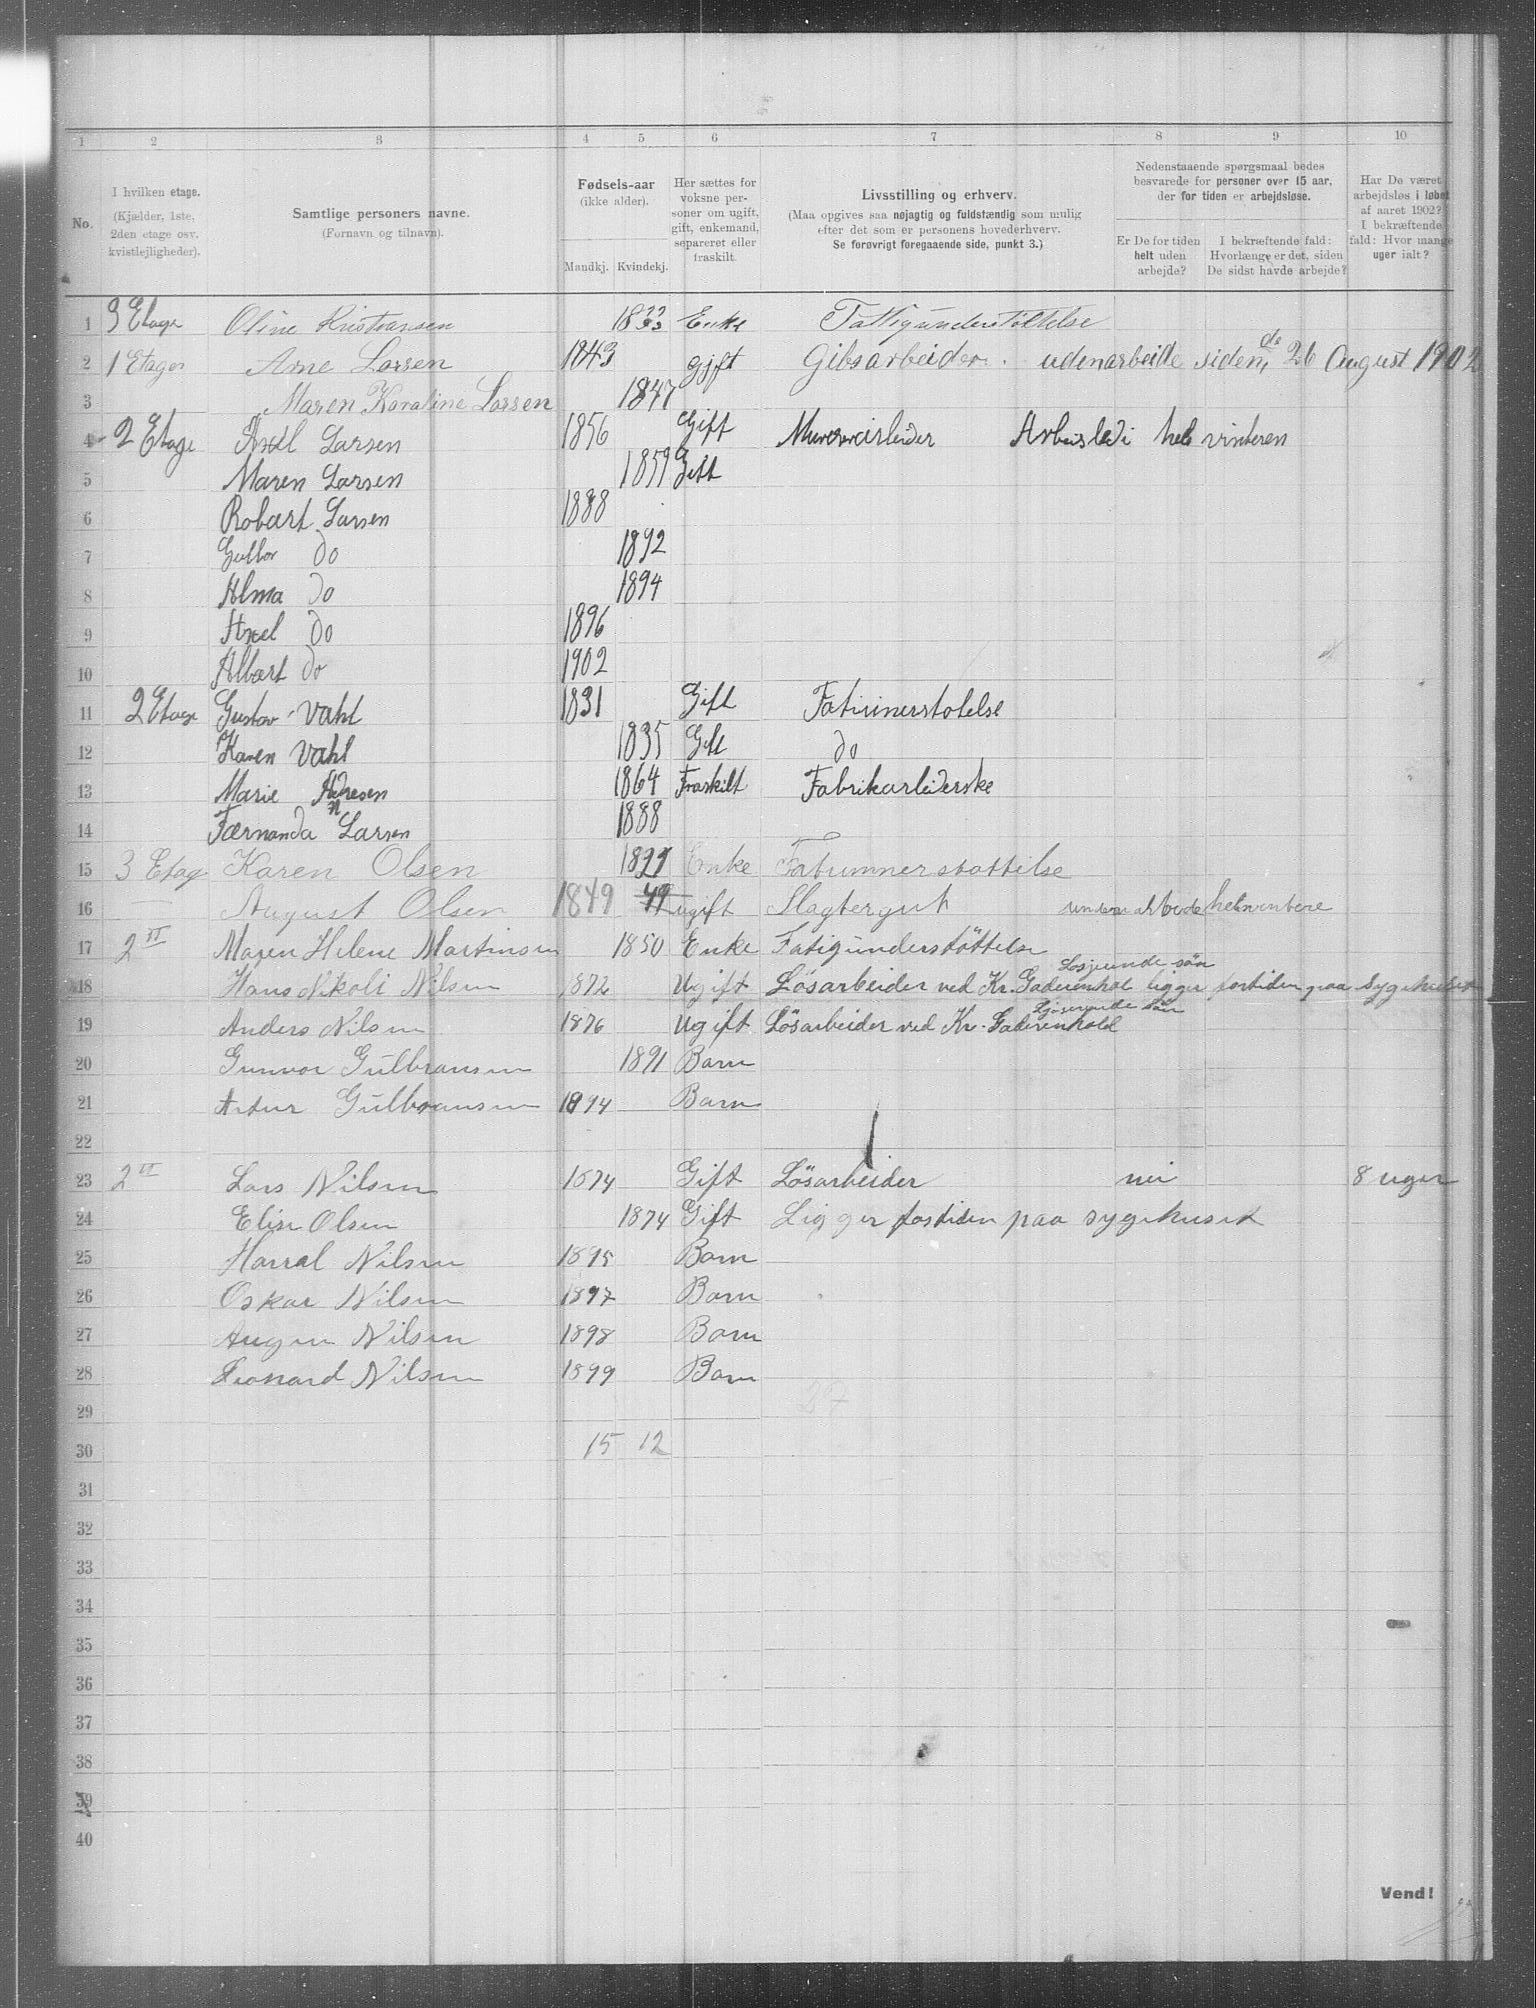 1 2 3 4 5 6 7 8 9 10
No.
I hvilken etage.
(Kjælder, 1ste,
2den etage osv.
kvistlejligheder).
Samtlige personers navne.
(Fornavn og tilnavn).
Fødsels-aar
(ikke alder).
Mandkj. Kvindekj.
Her sættes for
voksne per-
soner om ugift,
gift, enkemand,
separeret eller
fraskilt.
Livsstilling og erhverv.
(Maa opgives saa nøjagtig og fuldstændig som mulig
efter det som er personens hovederhverv.
Se forøvrigt foregaaende side, punkt 3.)
Nedenstaaende spørgsmaal bedes
besvarede for personer over 15 aar,
der for tiden er arbejdsløse.
Er De for tiden
helt uden
arbejde?
I bekræftende fald:
Hvorlænge er det, siden
De sidst havde arbejde?
Har De været
arbejdsløs i løbet
af aaret 1902?
I bekræftende
fald: Hvor mange
uger ialt?
1 3 Etage Oline Kristiansen 1833 Enke Fattigunderstöttelse
2 1 Etage Arne Larsen 1843 gift Gibsarbeider. udenarbeide siden de 26 August 1902
3 Maren Karoline Larsen 1847
4 2 Etage Axel Larsen 1856 Gift Murerarbeider Arbeisledi hele vinteren
5 Maren Larsen 1859 Gift
6 Robart Larsen 1888
7 Gulbor do 1892
8 Alma do 1894
9 Axel do 1896
10 Albart do 1902
11 2 Etage Gustav Vahl 1831 Gift Fatiunerstotelse
12 Karen Vahl 1835 Gift do
13 Marie Adresen n 1864 Fraskilt Fabrikarleiderske
14 Færnanda Larsen 1888
15 3 Etag Karen Olsen Enke Fatumnerstottelse
16 August Olsen 1849 49 ugift Slagtergut
17 2 et Maren Helene Martinsen 1850 Enke Fatigunderstöttelse
18 Hans Nikoli Nilsen 1872 Ugift Lösarbeider ved Kr. Gaderenhol Losjerende sön ligger fortiden paa Sygehuset
19 Anders Nilsen 1876 Ugift Lösarbeider ved Kr. Gaderenhold sön
20 Gunvor Gulbransen 1891 Barn
21 Artur Gulbransen 1894 Barn
22
23 2 et Lars Nilsen 1874 Gift Lösarbeider nei 8 uger
24 Elise Olsen 1874 Gift Ligger fortiden paa sygehuset
25 Harral Nilsen 1895 Barn
26 Oskar Nilsen 1897 Barn
27 Augen Nilsen 1898 Barn
28 Leonard Nilsen 1899 Barn
29 27
30 15 12
31
32
33
34
35
36
37
38
39
40
Vend!